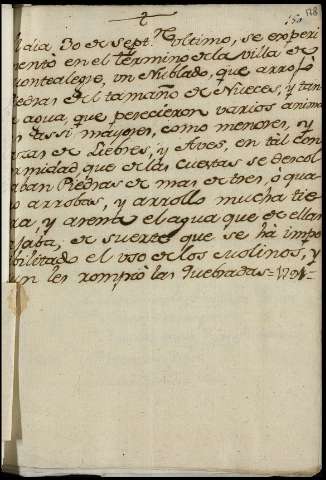 128
l dia 30 de Sept.re ultimo, se experi
mentò en el termino de la villa de
ontealegre, un Nublado, que arrojò
iedras del tamaño de Nueces, y tan
a agua, que perecieron varios anima
es assi mayores, como menores, y
zas de Liebres, y Aves, en tal con
rmidad, que de las cuestas se descol
aban Piedras de mas de tres, ò qua
o arrobas, y arrollo mucha tie
a, y arena el agua que de ellas
jaba, de suerte que se há impo
bilitado el uso de los molinos, y
un les rompiò las Quebradas =